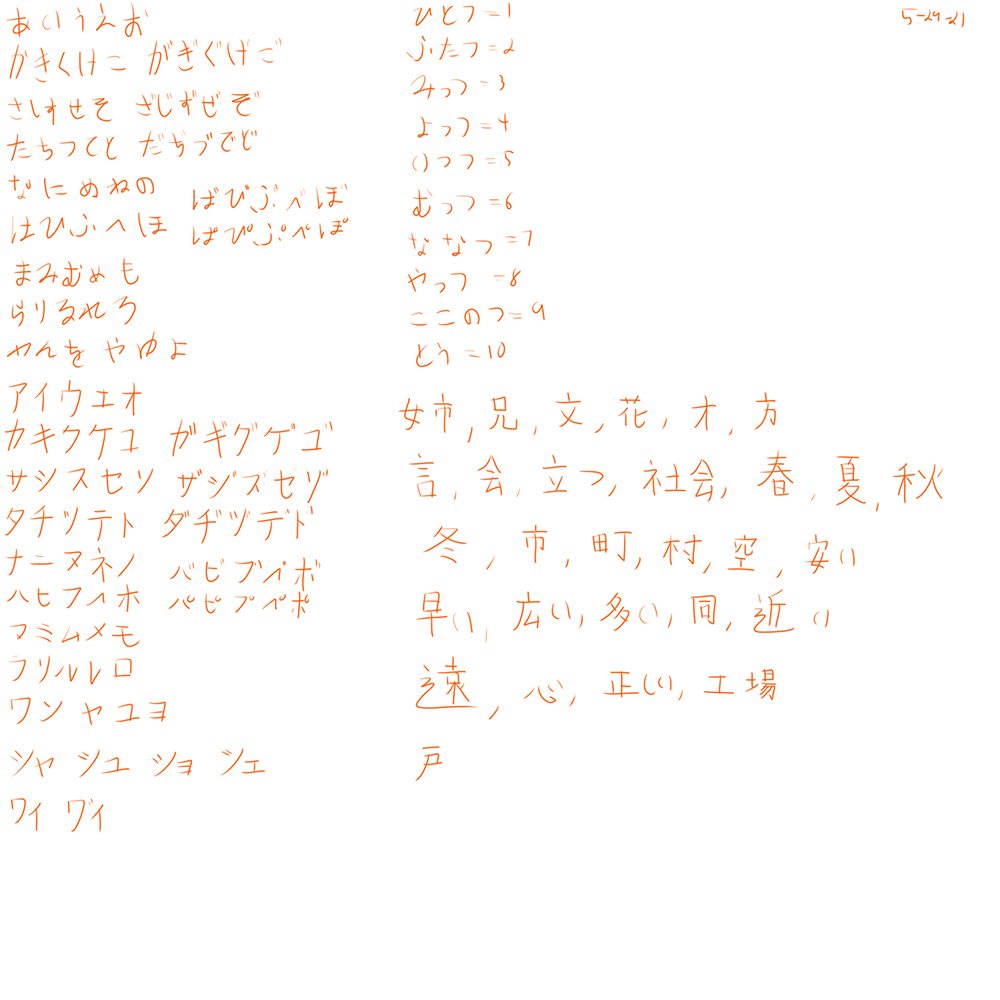 あいうえお
かきくけこ がぎぐげご
さしすせそ ざじずぜぞ
たちつてと だぢづでど
なにぬねの
ばびぶべぼ
はひふへほ
ぱぴぷぺぽ
まみむめも
らりるれろ
わんを やゆよ
アイウエオ
カキクケコ ガギグゲゴ
サシスセソ ザジズセゾ
タチツテト ダヂヅデド
ナニヌネノ
バビブベボ
ハヒフヘホ
パピプペポ
マミムメモ
ラリルレロ
ワン ヤユヨ
シャ シュ ショ シェ
ワィ ヴィ
ひとつ=1
ふたつ=2
みっつ=3
よっつ=4
いつつ=5
むっつ=6
ななつ=7
やっつ=8
ここのつ=9
とう=10
姉, 兄, 文, 花, オ, 方
言, 会, 立つ, 社会, 春, 夏, 秋
冬, 市, 町, 村, 空, 安い
早い, 広い, 多い, 同, 近い
遠, 心, 正しい, 工場
戸
5-29-21